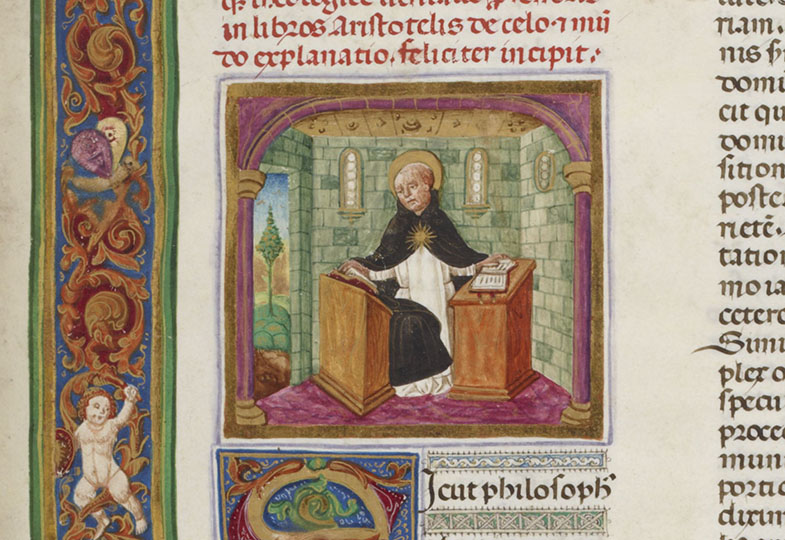 in libros Aristotelis de celo ⁊ mũ
do explanatio feliciter incipit.
Sicut philosoph̃
riam.
nis
domi
cit qu
domi
sition
poste
rietẽ.
tation
mo ia
cetero
Simi
plex o
specu
proced
mun
portio
dixim